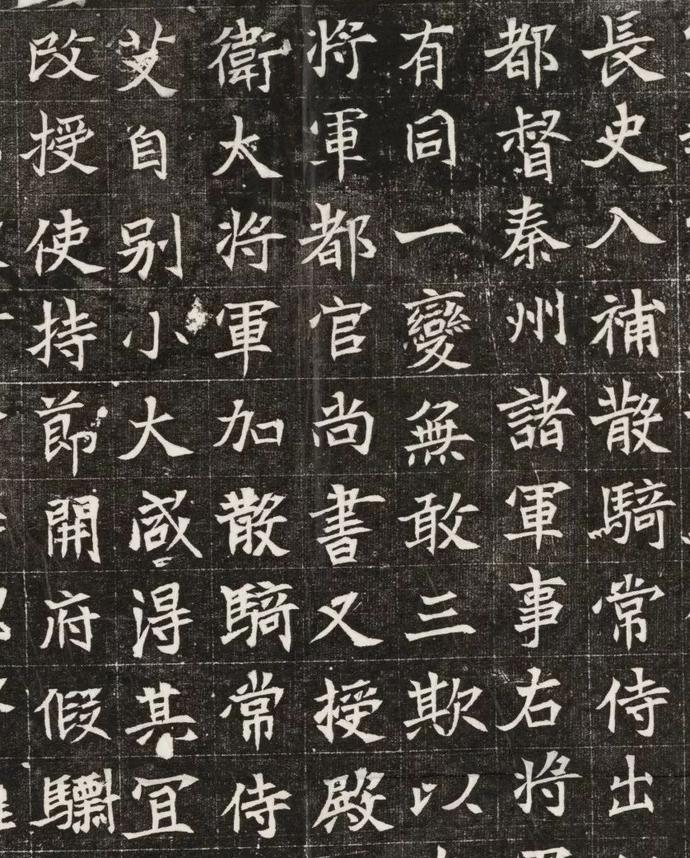 長史入補散騎常侍出
都督秦州諸軍事右將
有同一變無敢三欺以
將軍都官尚書又授殿
衛大將軍加散騎常侍
艾自别小大咸得其冝
改授使持節開府假驃